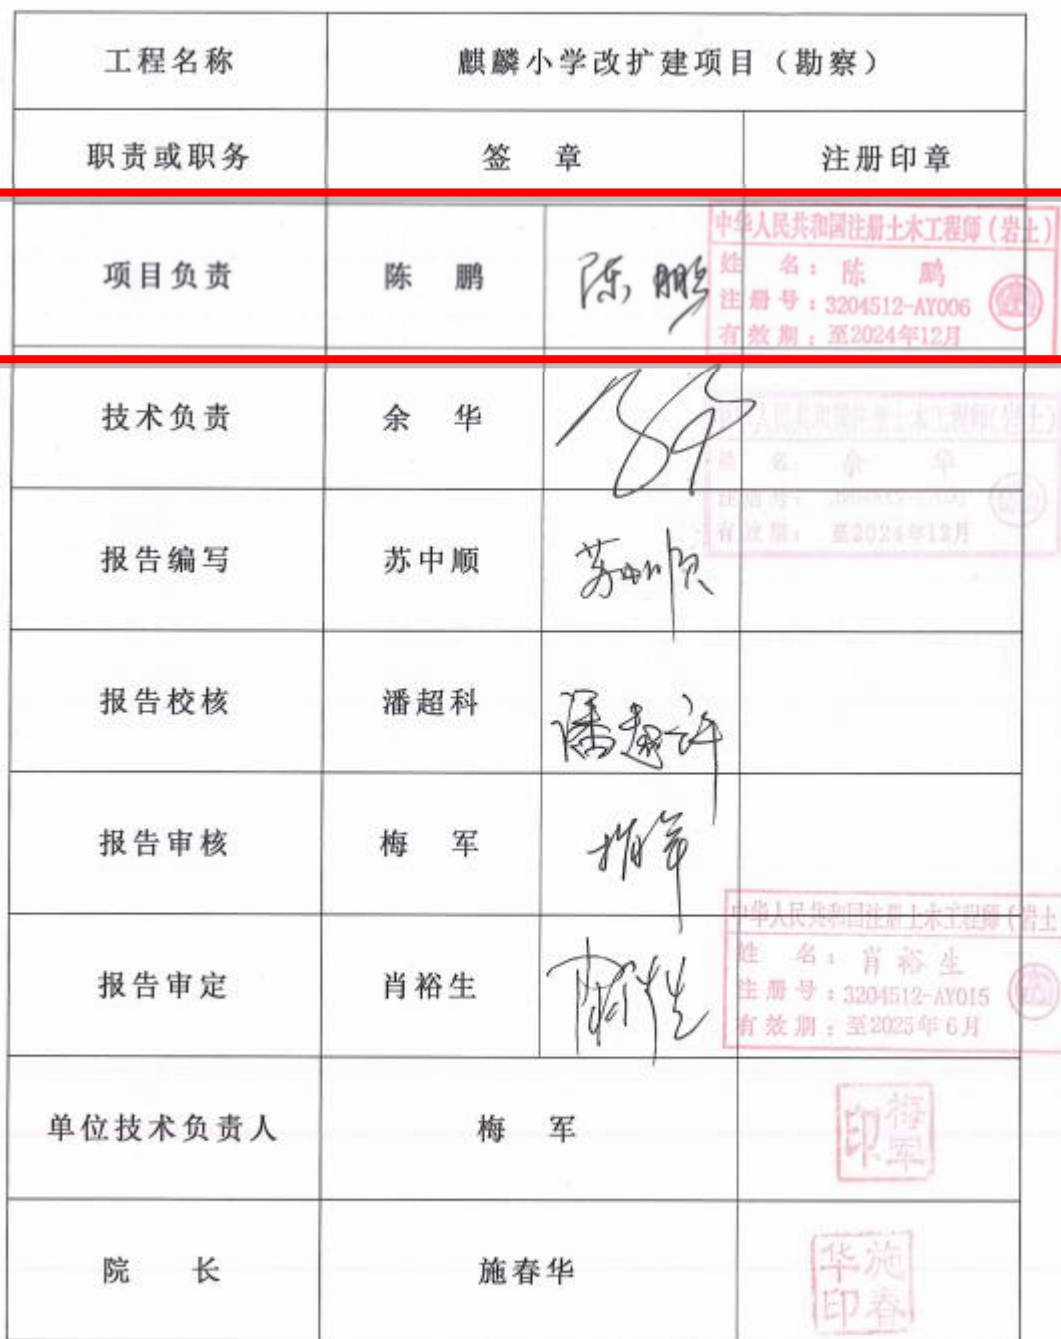 工程名称 麒麟小学改扩建项目（勘察）
职责或职务 签 章 注册印章
项目负责 陈 鹏 陈鹏
中华人民共和国注册土木工程师（岩土）
姓 名：陈 鹏
注册号：3204512-AY006
有效期：至2024年12月
技术负责 余 华
中华人民共和国注册土木工程师（岩土）
姓 名：余 华
注册号：
有效期：至2024年12月
报告编写 苏中顺 苏中顺
报告校核 潘超科
报告审核 梅 军 梅军
报告审定 肖裕生
中华人民共和国注册土木工程师（岩土
姓 名：肖裕生
注册号：3204512-AY015
有效期：至2025年6月
单位技术负责人 梅 军 梅军印
院 长 施春华 施春华印